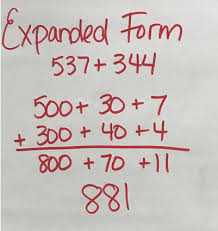 Expanded Form
537 + 344
500 + 30 + 7
+ 300 + 40 + 4
800 + 70 + 11
881